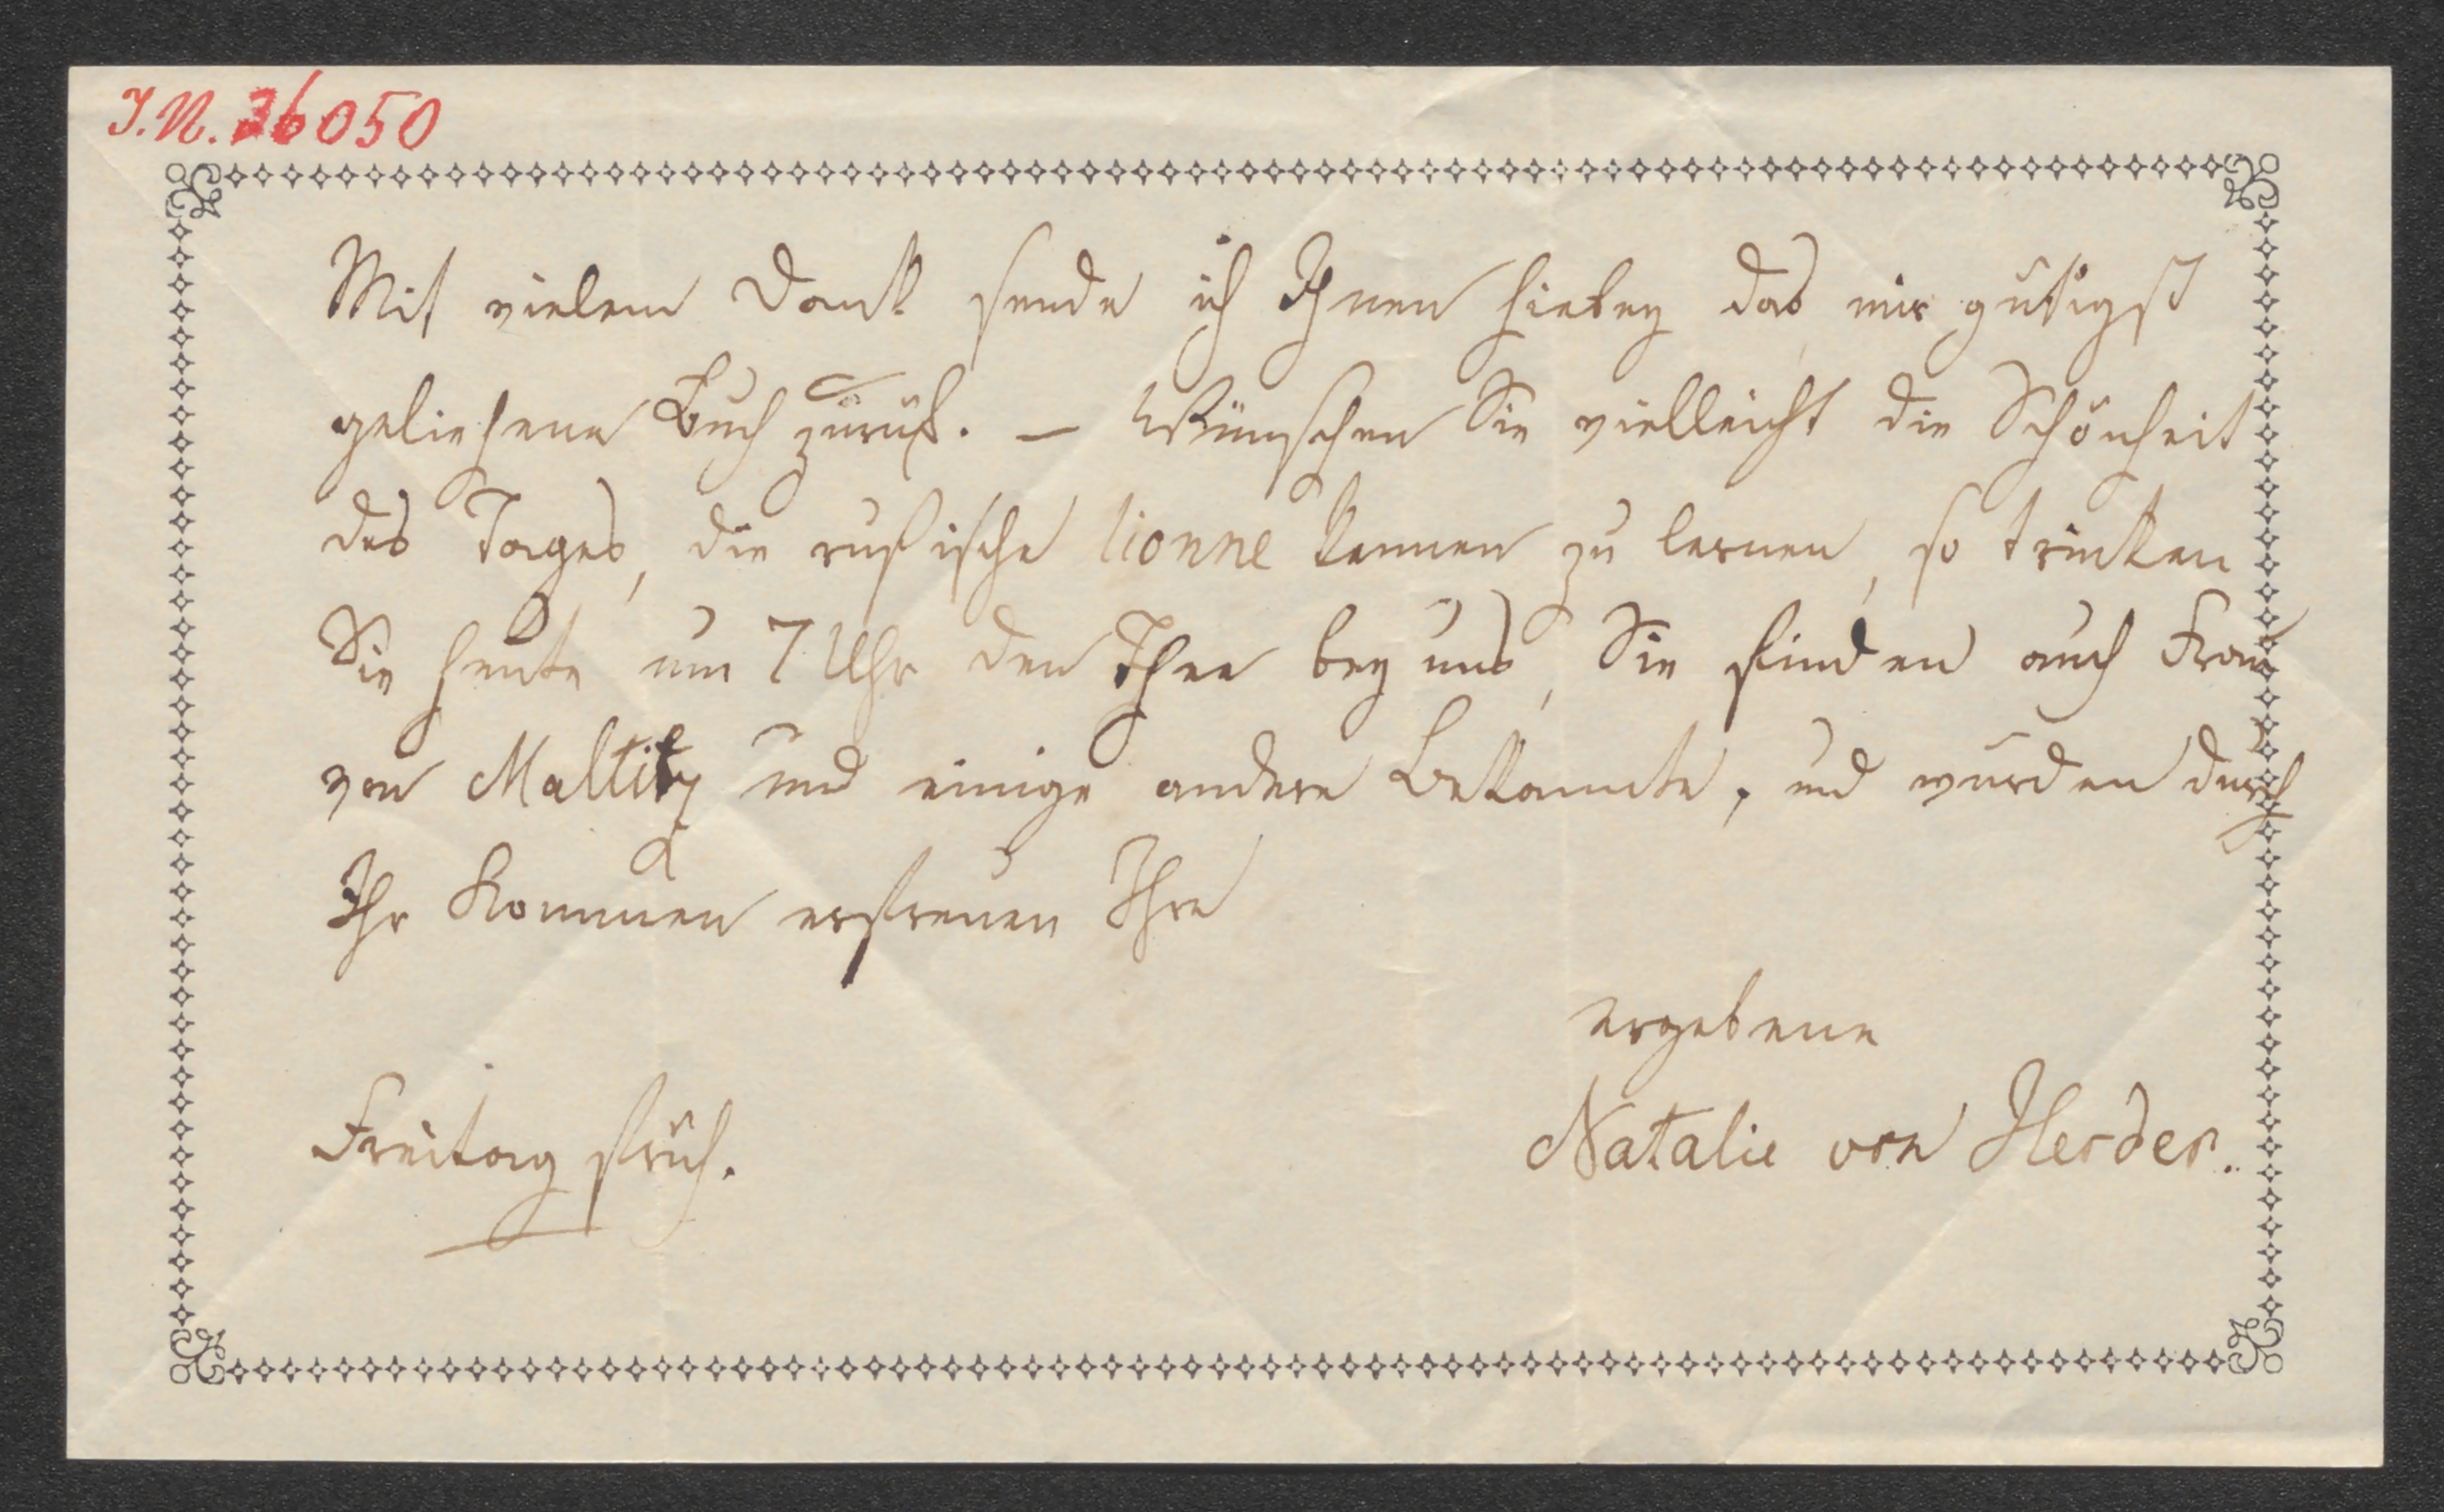 I.N. 36050
Mit vielem Dank sende ich Ihnen hiebey das mir gütigst
geliehene Buch zurük. – Wünschen Sie vielleicht die Schönheit
des Tages, die rußische lionne kennen zu lernen, so trinken
Sie heute um 7 Uhr den Thee bey uns, Sie finden auch Frau
von Maltitz und einige andere Bekannte, und würden durch
Ihr Kommen erfreuen Ihre
ergebene
Natalie von Herder.
Freitag früh.